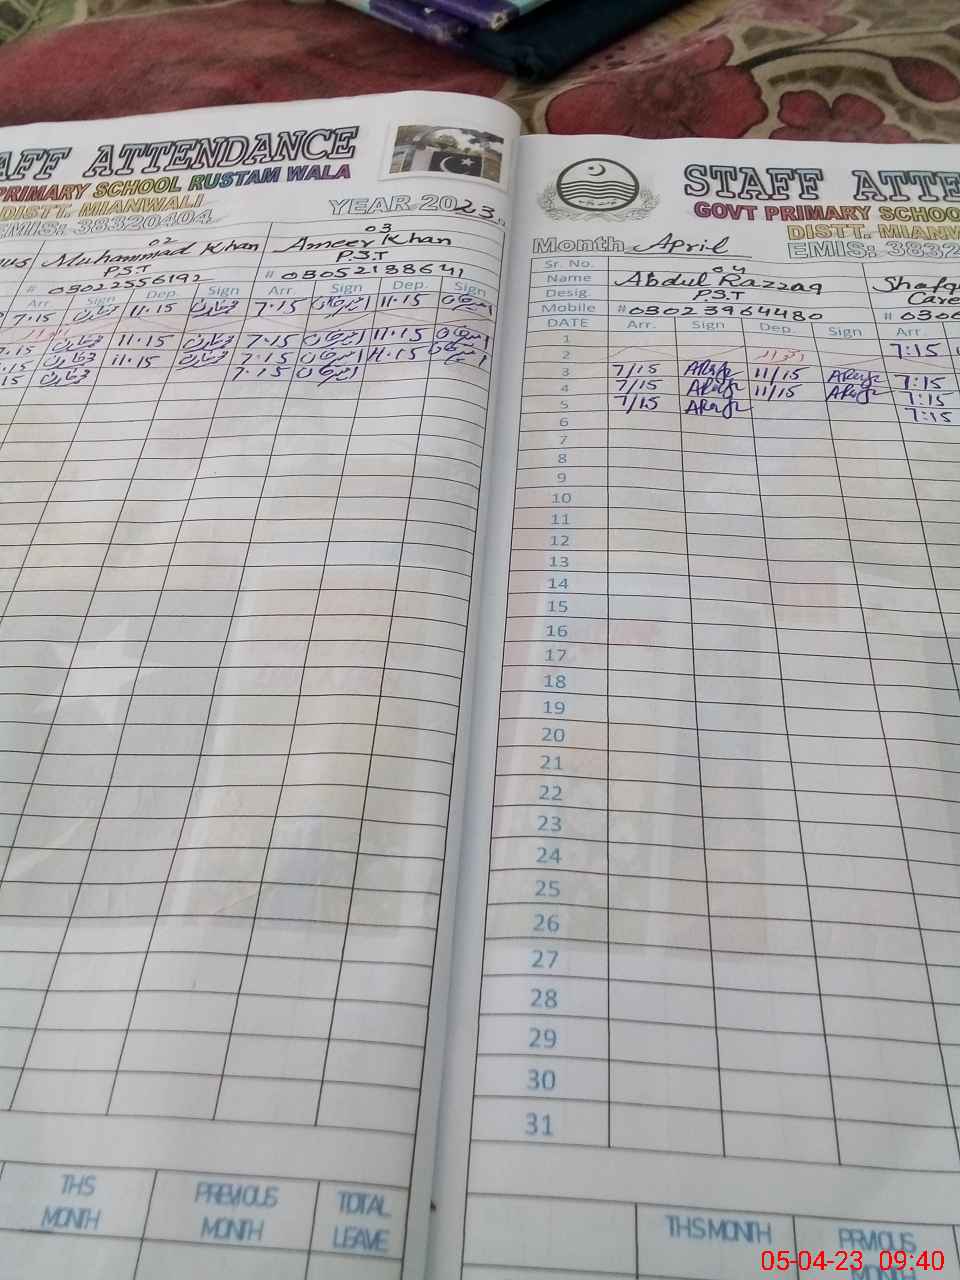 AFF ATTENDANCE
PRIMARY SCHOOL RUSTAM WALA
DISTT. MIANWALI
EMIS: 38320404
YEAR 2023
02 03
Muhammad Khan Ameer Khan
P.S.T P.S.T
# 03022556192 # 03052188641
Arr. Sign Dep. Sign Arr. Sign Dep. Sign
7.15 11.15 7.15 امیر خان 11.15 امیر خان
اتوار
7.15 11.15 7.15 امیر خان 11.15 امیر خان
7.15 11.15 7.15 امیر خان 11.15 امیر خان
15 7.15 امیر خان
THS MONTH PREVIOUS MONTH TOTAL LEAVE
STAFF ATTE
GOVT PRIMARY SCHOO
DISTT. MIANW
EMIS: 3832
Month April
Sr. No. 04
Name Abdul Razzaq Shafq
Desig. P.S.T Care
Mobile #03023964480 # 0306
DATE Arr. Sign Dep. Sign Arr.
1 7:15
2 اتوار
3 7/15 11/15 7:15
4 7/15 11/15 7:15
5 7/15 7:15
6
7
8
9
10
11
12
13
14
15
16
17
18
19
20
21
22
23
24
25
26
27
28
29
30
31
THS MONTH PRVIOUS MONTH
05-04-23 09:40